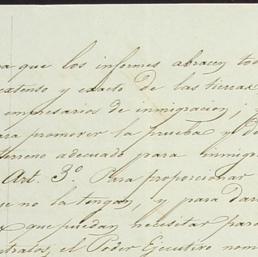 que los informes abracen
extenso y exacto de las tierras
empresarios de inmigracion; y
para promover la prueba y
terreno adecuado para inmigr
Art. 3º Para proporcionar
que no la tengan, y para dar
que puedan necesitar para
contratos, el Poder Ejecutivo nom